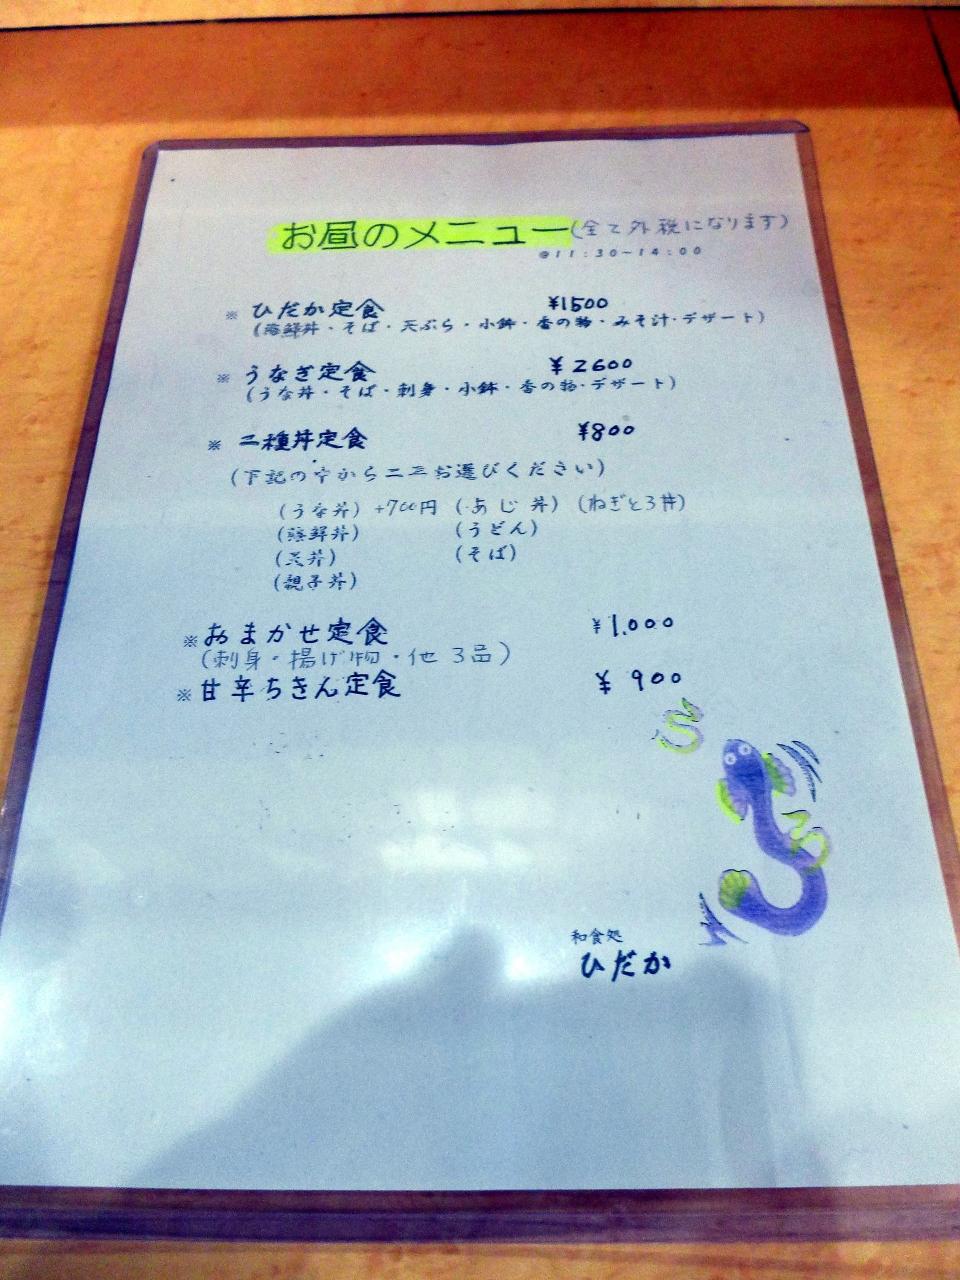 お昼のメニュー(全て外税になります)
@11:30~14:00
※ ひだか定食 ¥1500
(海鮮丼・そば・天ぷら・小鉢・香の物・みそ汁・デザート)
※ うなぎ定食 ¥2600
(うな丼・そば・刺身・小鉢・香の物・デザート)
※ 二種丼定食 ¥800
(下記の中から二つお選びください)
(うな丼)+700円 (あじ丼) (ねぎとろ丼)
(海鮮丼) (うどん)
(天丼) (そば)
(親子丼)
※ おまかせ定食 ¥1.000
(刺身・揚げ物・他3品)
※ 甘辛ちきん定食 ¥900
和食処
ひだか